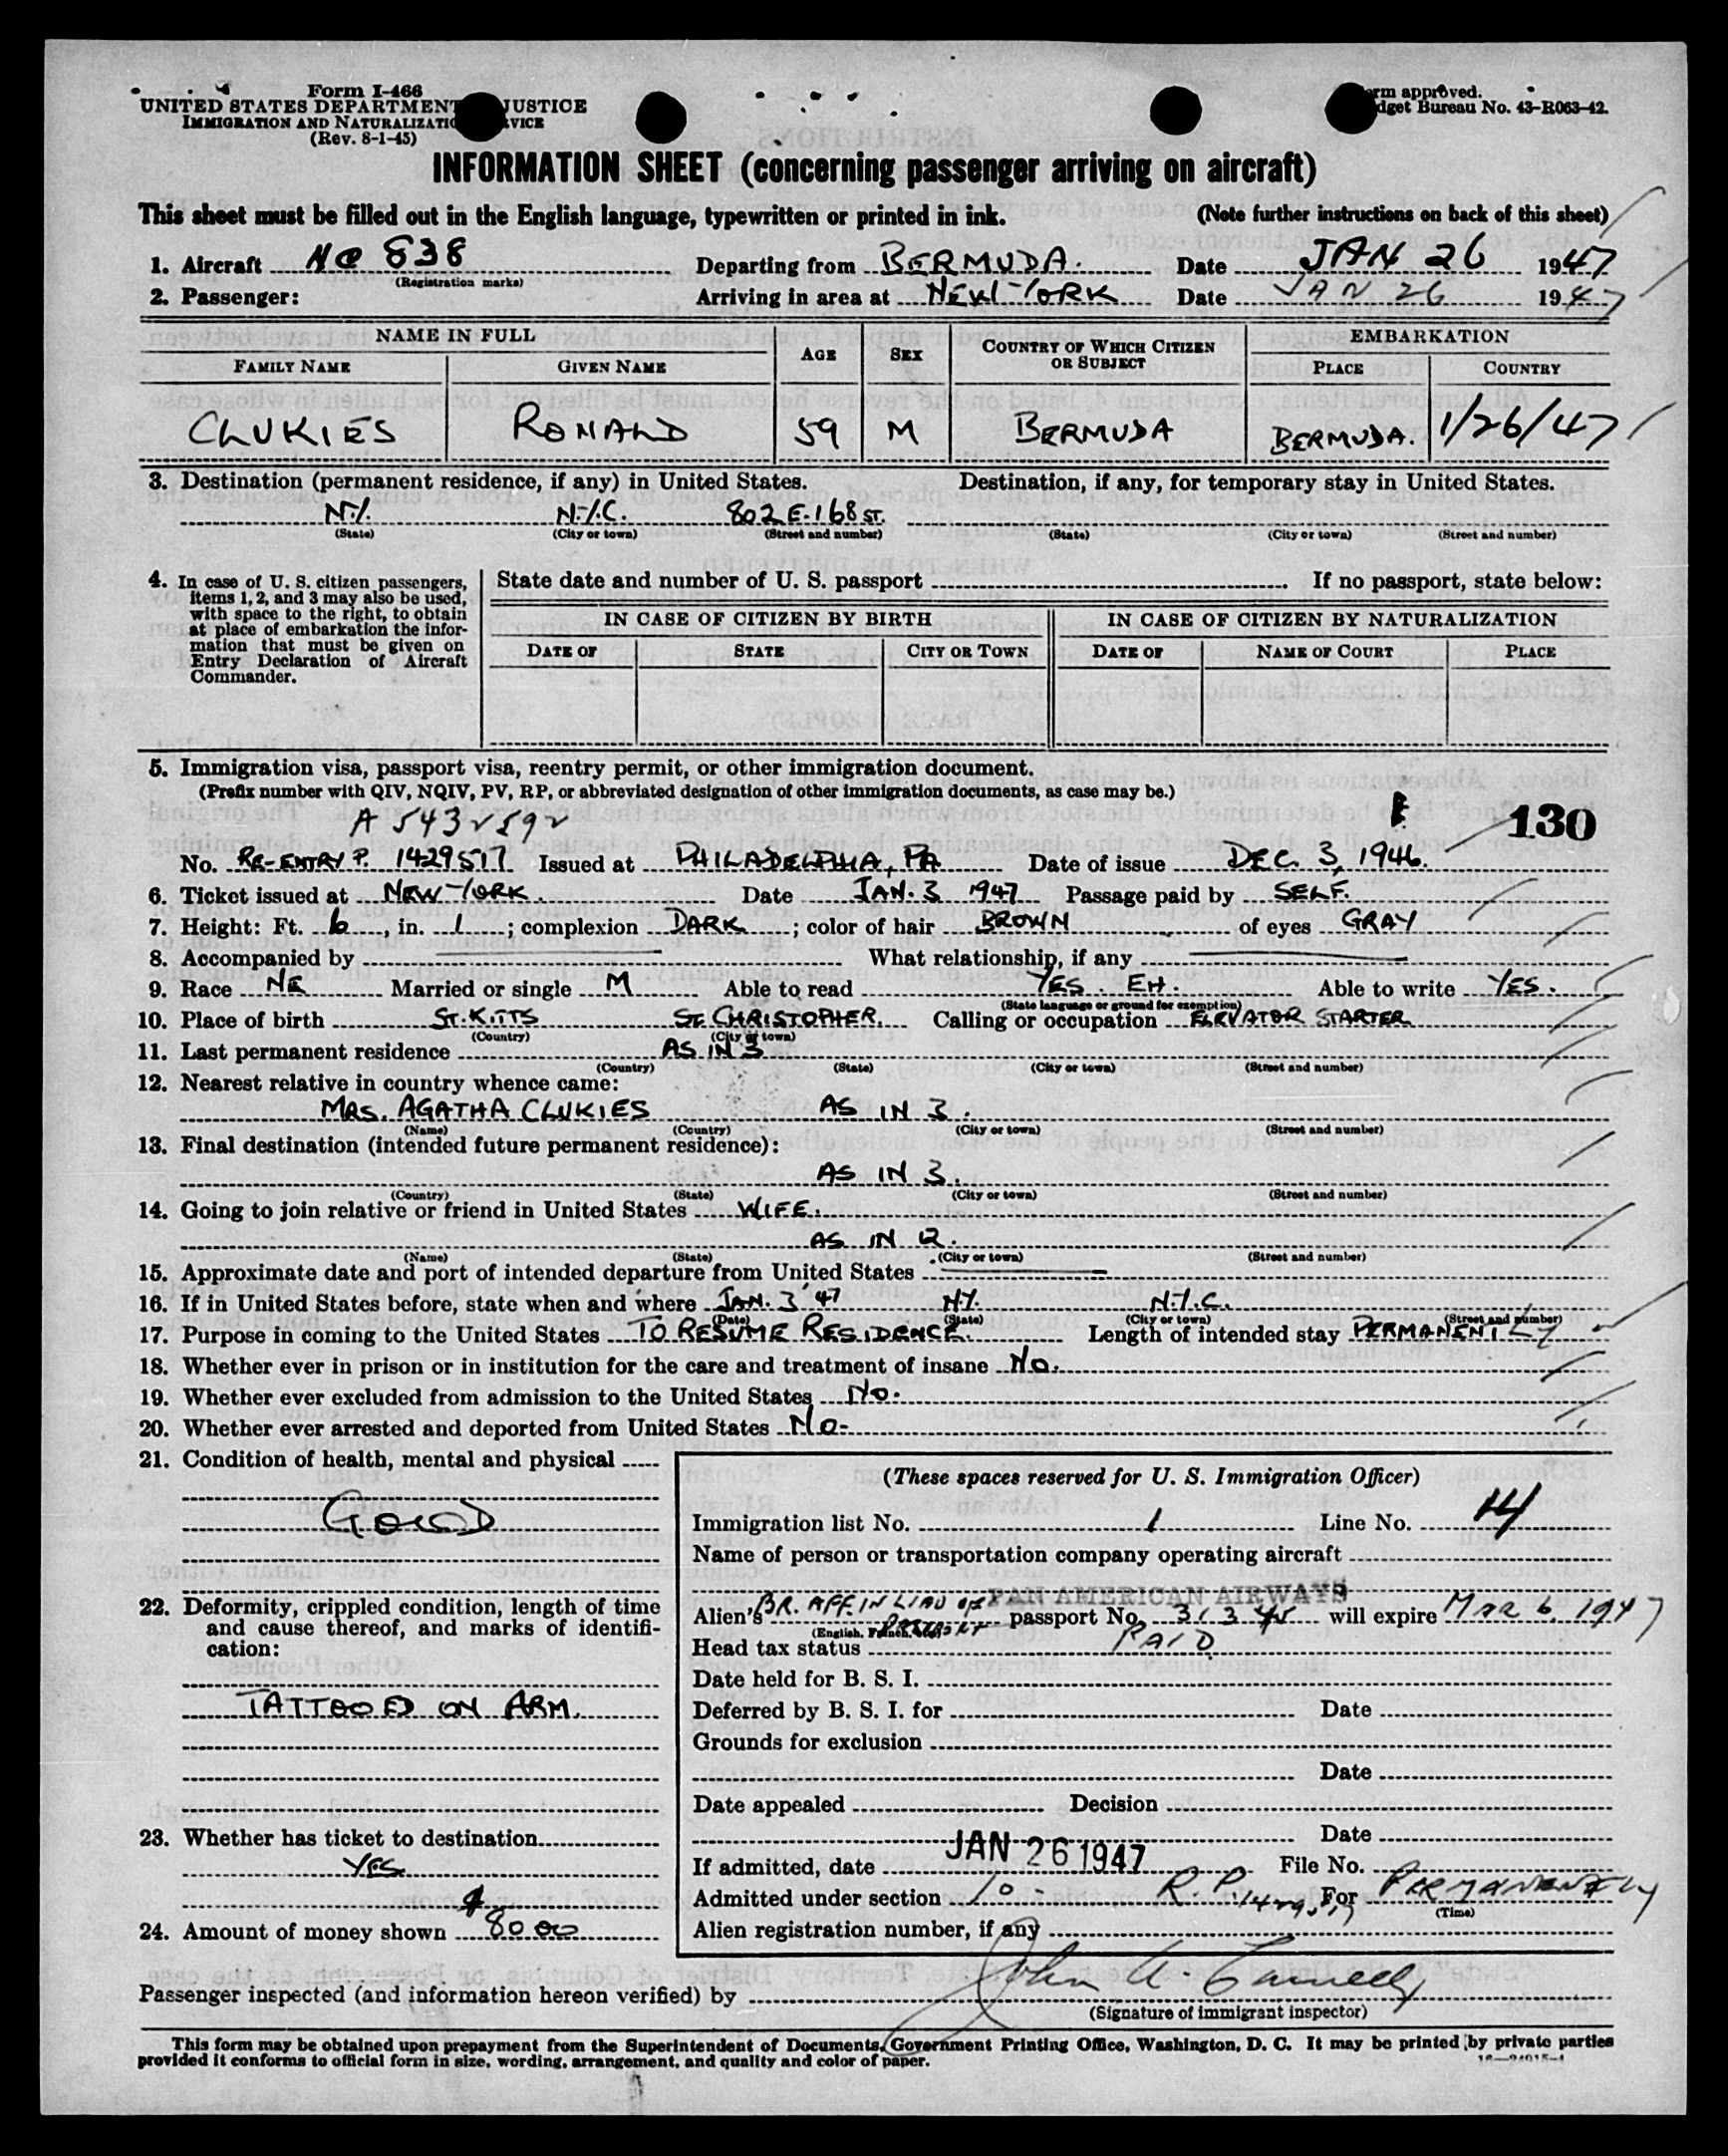 Form I-466
UNITED STATES DEPARTMENT JUSTICE
IMMIGRATION AND NATURALIZATIO VICE
(Rev. 8-1-45)
rm approved.
dget Bureau No. 43-R063-42.
INFORMATION SHEET (concerning passenger arriving on aircraft)
This sheet must be filled out in the English language, typewritten or printed in ink. (Note further instructions on back of this sheet)
1. Aircraft NC 838 Departing from BERMUDA. Date JAN 26 1947
(Registration marks)
2. Passenger: Arriving in area at NEW YORK Date JAN 26 1947
NAME IN FULL AGE SEX COUNTRY OF WHICH CITIZEN OR SUBJECT EMBARKATION
FAMILY NAME GIVEN NAME PLACE COUNTRY
CLUKIES RONALD 59 M BERMUDA BERMUDA. 1/26/47
3. Destination (permanent residence, if any) in United States. Destination, if any, for temporary stay in United States.
N.Y. N.Y.C. 802 E. 168 ST.
(State) (City or town) (Street and number) (State) (City or town) (Street and number)
4. In case of U. S. citizen passengers, items 1, 2, and 3 may also be used, with space to the right, to obtain at place of embarkation the information that must be given on Entry Declaration of Aircraft Commander.
State date and number of U. S. passport If no passport, state below:
IN CASE OF CITIZEN BY BIRTH IN CASE OF CITIZEN BY NATURALIZATION
DATE OF STATE CITY OR TOWN DATE OF NAME OF COURT PLACE
5. Immigration visa, passport visa, reentry permit, or other immigration document.
(Prefix number with QIV, NQIV, PV, RP, or abbreviated designation of other immigration documents, as case may be.)
A 5432592
130
No. RE-ENTRY P. 1429517 Issued at PHILADELPHIA, PA Date of issue DEC. 3, 1946.
6. Ticket issued at NEW YORK. Date JAN. 3 1947 Passage paid by SELF.
7. Height: Ft. 6, in. 1; complexion DARK; color of hair BROWN of eyes GRAY
8. Accompanied by What relationship, if any
9. Race NE Married or single M Able to read YES. EH. Able to write YES.
(State language or ground for exemption)
10. Place of birth ST. KITTS ST. CHRISTOPHER. Calling or occupation ELEVATOR STARTER
(Country) (City or town)
11. Last permanent residence AS IN 3
(Country) (State) (City or town) (Street and number)
12. Nearest relative in country whence came:
MRS. AGATHA CLUKIES AS IN 3.
(Name) (Country) (City or town) (Street and number)
13. Final destination (intended future permanent residence):
AS IN 3.
(Country) (State) (City or town) (Street and number)
14. Going to join relative or friend in United States WIFE.
AS IN 12.
(Name) (State) (City or town) (Street and number)
15. Approximate date and port of intended departure from United States
16. If in United States before, state when and where JAN. 3 '47 N.Y. N.Y.C.
(Date) (State) (City or town) (Street and number)
17. Purpose in coming to the United States TO RESUME RESIDENCE. Length of intended stay PERMANENTLY
18. Whether ever in prison or in institution for the care and treatment of insane NO.
19. Whether ever excluded from admission to the United States NO.
20. Whether ever arrested and deported from United States NO-
21. Condition of health, mental and physical
GOOD
22. Deformity, crippled condition, length of time and cause thereof, and marks of identification:
TATTOOED ON ARM.
23. Whether has ticket to destination
YES
24. Amount of money shown $ 80.00
(These spaces reserved for U. S. Immigration Officer)
Immigration list No. 1 Line No. 14
Name of person or transportation company operating aircraft
PAN AMERICAN AIRWAYS
Alien's BR. AFF. IN LIEU OF PASSPORT passport No. will expire MAR 6, 1947
(English, French, etc.)
Head tax status PAID
Date held for B. S. I.
Deferred by B. S. I. for Date
Grounds for exclusion
Date
Date appealed Decision
Date
If admitted, date JAN 26 1947 File No.
Admitted under section 10- R.P. 1429517 For PERMANENTLY
(Time)
Alien registration number, if any
Passenger inspected (and information hereon verified) by John A.
(Signature of immigrant inspector)
This form may be obtained upon prepayment from the Superintendent of Documents, Government Printing Office, Washington, D. C. It may be printed by private parties
provided it conforms to official form in size, wording, arrangement, and quality and color of paper.